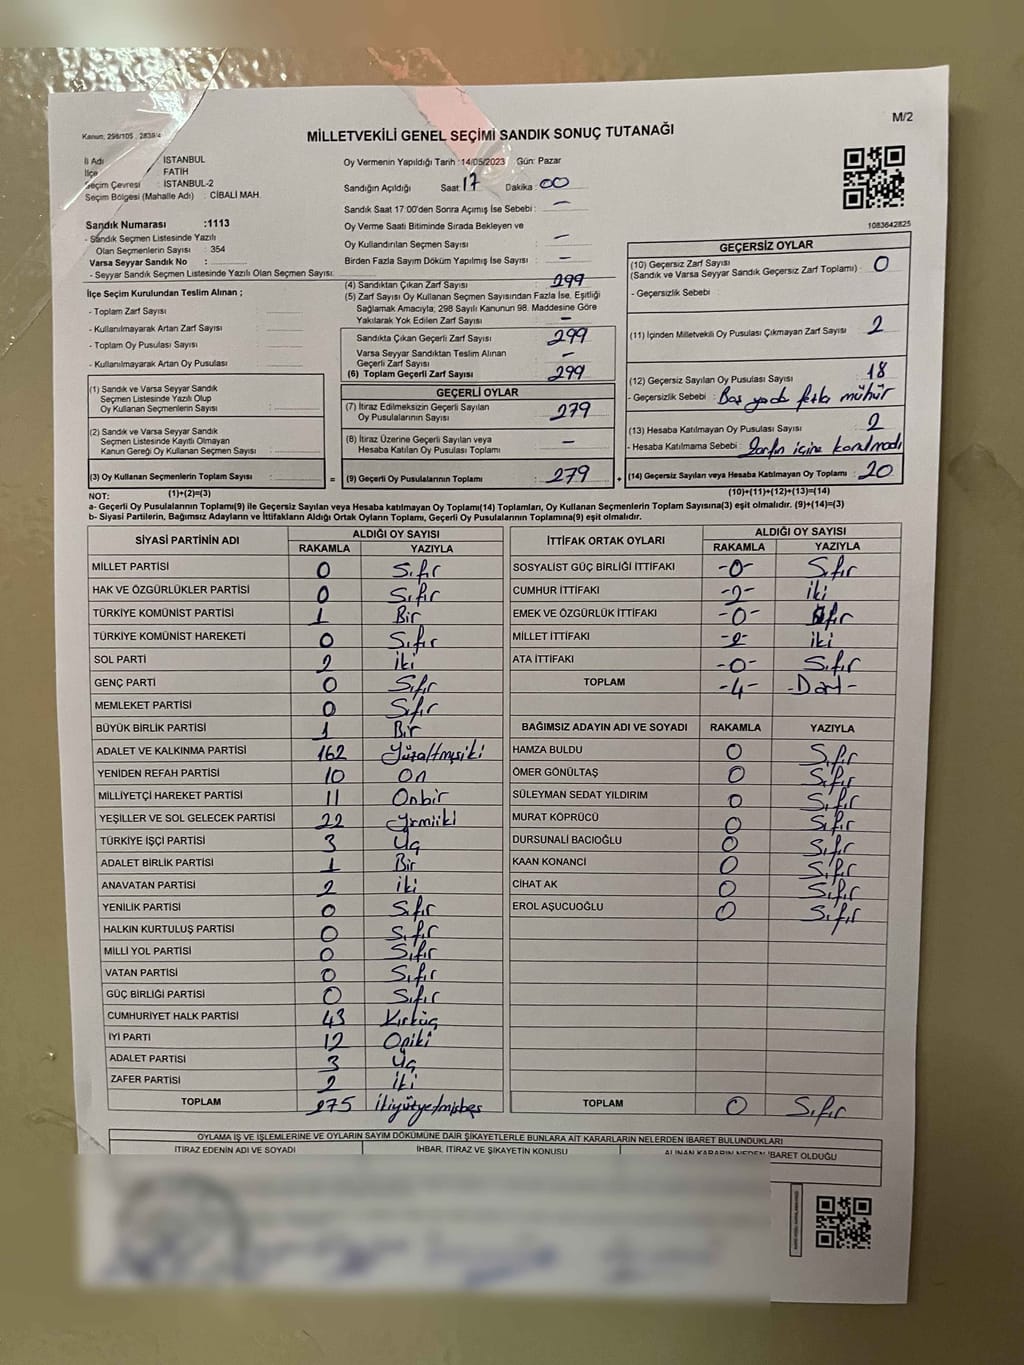 M/2
Kanun: 298/105 , 2839/4
MİLLETVEKİLİ GENEL SEÇİMİ SANDIK SONUÇ TUTANAĞI
İl Adı : İSTANBUL
İlçe : FATİH
Seçim Çevresi : İSTANBUL-2
Seçim Bölgesi (Mahalle Adı) : CİBALİ MAH.
Sandık Numarası :1113
- Sandık Seçmen Listesinde Yazılı
Olan Seçmenlerin Sayısı : 354
Varsa Seyyar Sandık No :
- Seyyar Sandık Seçmen Listesinde Yazılı Olan Seçmen Sayısı:
İlçe Seçim Kurulundan Teslim Alınan ;
- Toplam Zarf Sayısı :
- Kullanılmayarak Artan Zarf Sayısı :
- Toplam Oy Pusulası Sayısı :
- Kullanılmayarak Artan Oy Pusulası :
(1) Sandık ve Varsa Seyyar Sandık
Seçmen Listesinde Yazılı Olup
Oy Kullanan Seçmenlerin Sayısı :
(2) Sandık ve Varsa Seyyar Sandık
Seçmen Listesinde Kayıtlı Olmayan
Kanun Gereği Oy Kullanan Seçmen Sayısı :
(3) Oy Kullanan Seçmenlerin Toplam Sayısı :
Oy Vermenin Yapıldığı Tarih :14/05/2023 Gün: Pazar
Sandığın Açıldığı Saat: 17 Dakika : 00
Sandık Saat 17:00'den Sonra Açımış İse Sebebi : -
Oy Verme Saati Bitiminde Sırada Bekleyen ve
Oy Kullandırılan Seçmen Sayısı : -
Birden Fazla Sayım Döküm Yapılmış İse Sayısı : -
(4) Sandıktan Çıkan Zarf Sayısı : 299
(5) Zarf Sayısı Oy Kullanan Seçmen Sayısından Fazla İse, Eşitliği
Sağlamak Amacıyla; 298 Sayılı Kanunun 98. Maddesine Göre
Yakılarak Yok Edilen Zarf Sayısı : -
Sandıkta Çıkan Geçerli Zarf Sayısı : 299
Varsa Seyyar Sandıktan Teslim Alınan
Geçerli Zarf Sayısı : -
(6) Toplam Geçerli Zarf Sayısı : 299
GEÇERLİ OYLAR
(7) İtiraz Edilmeksizin Geçerli Sayılan
Oy Pusulalarının Sayısı : 279
(8) İtiraz Üzerine Geçerli Sayılan veya
Hesaba Katılan Oy Pusulası Toplamı : -
= (9) Geçerli Oy Pusulalarının Toplamı : 279
1083642825
GEÇERSİZ OYLAR
(10) Geçersiz Zarf Sayısı
(Sandık ve Varsa Seyyar Sandık Geçersiz Zarf Toplamı) : 0
- Geçersizlik Sebebi :
(11) İçinden Milletvekili Oy Pusulası Çıkmayan Zarf Sayısı : 2
(12) Geçersiz Sayılan Oy Pusulası Sayısı : 18
- Geçersizlik Sebebi : Boş yada fazla mühür
(13) Hesaba Katılmayan Oy Pusulası Sayısı : 2
- Hesaba Katılmama Sebebi : Zarfın içine konulmadı
+ (14) Geçersiz Sayılan veya Hesaba Katılmayan Oy Toplamı : 20
NOT: (1)+(2)=(3) (10)+(11)+(12)+(13)=(14)
a- Geçerli Oy Pusulalarının Toplamı(9) ile Geçersiz Sayılan veya Hesaba Katılmayan Oy Toplamı(14) Toplamları, Oy Kullanan Seçmenlerin Toplam Sayısına(3) eşit olmalıdır. (9)+(14)=(3)
b- Siyasi Partilerin, Bağımsız Adayların ve İttifakların Aldığı Ortak Oyların Toplamı, Geçerli Oy Pusulalarının Toplamına(9) eşit olmalıdır.
SİYASİ PARTİNİN ADI ALDIĞI OY SAYISI
RAKAMLA YAZIYLA
MİLLET PARTİSİ 0 Sıfır
HAK VE ÖZGÜRLÜKLER PARTİSİ 0 Sıfır
TÜRKİYE KOMÜNİST PARTİSİ 1 Bir
TÜRKİYE KOMÜNİST HAREKETİ 0 Sıfır
SOL PARTİ 2 İki
GENÇ PARTİ 0 Sıfır
MEMLEKET PARTİSİ 0 Sıfır
BÜYÜK BİRLİK PARTİSİ 1 Bir
ADALET VE KALKINMA PARTİSİ 162 Yüzaltmışiki
YENİDEN REFAH PARTİSİ 10 On
MİLLİYETÇİ HAREKET PARTİSİ 11 Onbir
YEŞİLLER VE SOL GELECEK PARTİSİ 22 Yirmiiki
TÜRKİYE İŞÇİ PARTİSİ 3 Üç
ADALET BİRLİK PARTİSİ 1 Bir
ANAVATAN PARTİSİ 2 iki
YENİLİK PARTİSİ 0 Sıfır
HALKIN KURTULUŞ PARTİSİ 0 Sıfır
MİLLİ YOL PARTİSİ 0 Sıfır
VATAN PARTİSİ 0 Sıfır
GÜÇ BİRLİĞİ PARTİSİ 0 Sıfır
CUMHURİYET HALK PARTİSİ 43 Kırküç
İYİ PARTİ 12 Oniki
ADALET PARTİSİ 3 Üç
ZAFER PARTİSİ 2 İki
TOPLAM 275 İkiyüzyetmişbeş
İTTİFAK ORTAK OYLARI ALDIĞI OY SAYISI
RAKAMLA YAZIYLA
SOSYALİST GÜÇ BİRLİĞİ İTTİFAKI -0- Sıfır
CUMHUR İTTİFAKI -2- iki
EMEK VE ÖZGÜRLÜK İTTİFAKI -0- Sıfır
MİLLET İTTİFAKI -2- iki
ATA İTTİFAKI -0- Sıfır
TOPLAM -4- -Dört-
BAĞIMSIZ ADAYIN ADI VE SOYADI RAKAMLA YAZIYLA
HAMZA BULDU 0 Sıfır
ÖMER GÖNÜLTAŞ 0 Sıfır
SÜLEYMAN SEDAT YILDIRIM 0 Sıfır
MURAT KÖPRÜCÜ 0 Sıfır
DURSUNALİ BACIOĞLU 0 Sıfır
KAAN KONANCİ 0 Sıfır
CİHAT AK 0 Sıfır
EROL AŞUCUOĞLU 0 Sıfır
TOPLAM 0 Sıfır
OYLAMA İŞ VE İŞLEMLERİNE VE OYLARIN SAYIM DÖKÜMÜNE DAİR ŞİKAYETLERLE BUNLARA AİT KARARLARIN NELERDEN İBARET BULUNDUKLARI
İTİRAZ EDENİN ADI VE SOYADI İHBAR, İTİRAZ VE ŞİKAYETİN KONUSU ALINAN KARARIN NEDEN İBARET OLDUĞU